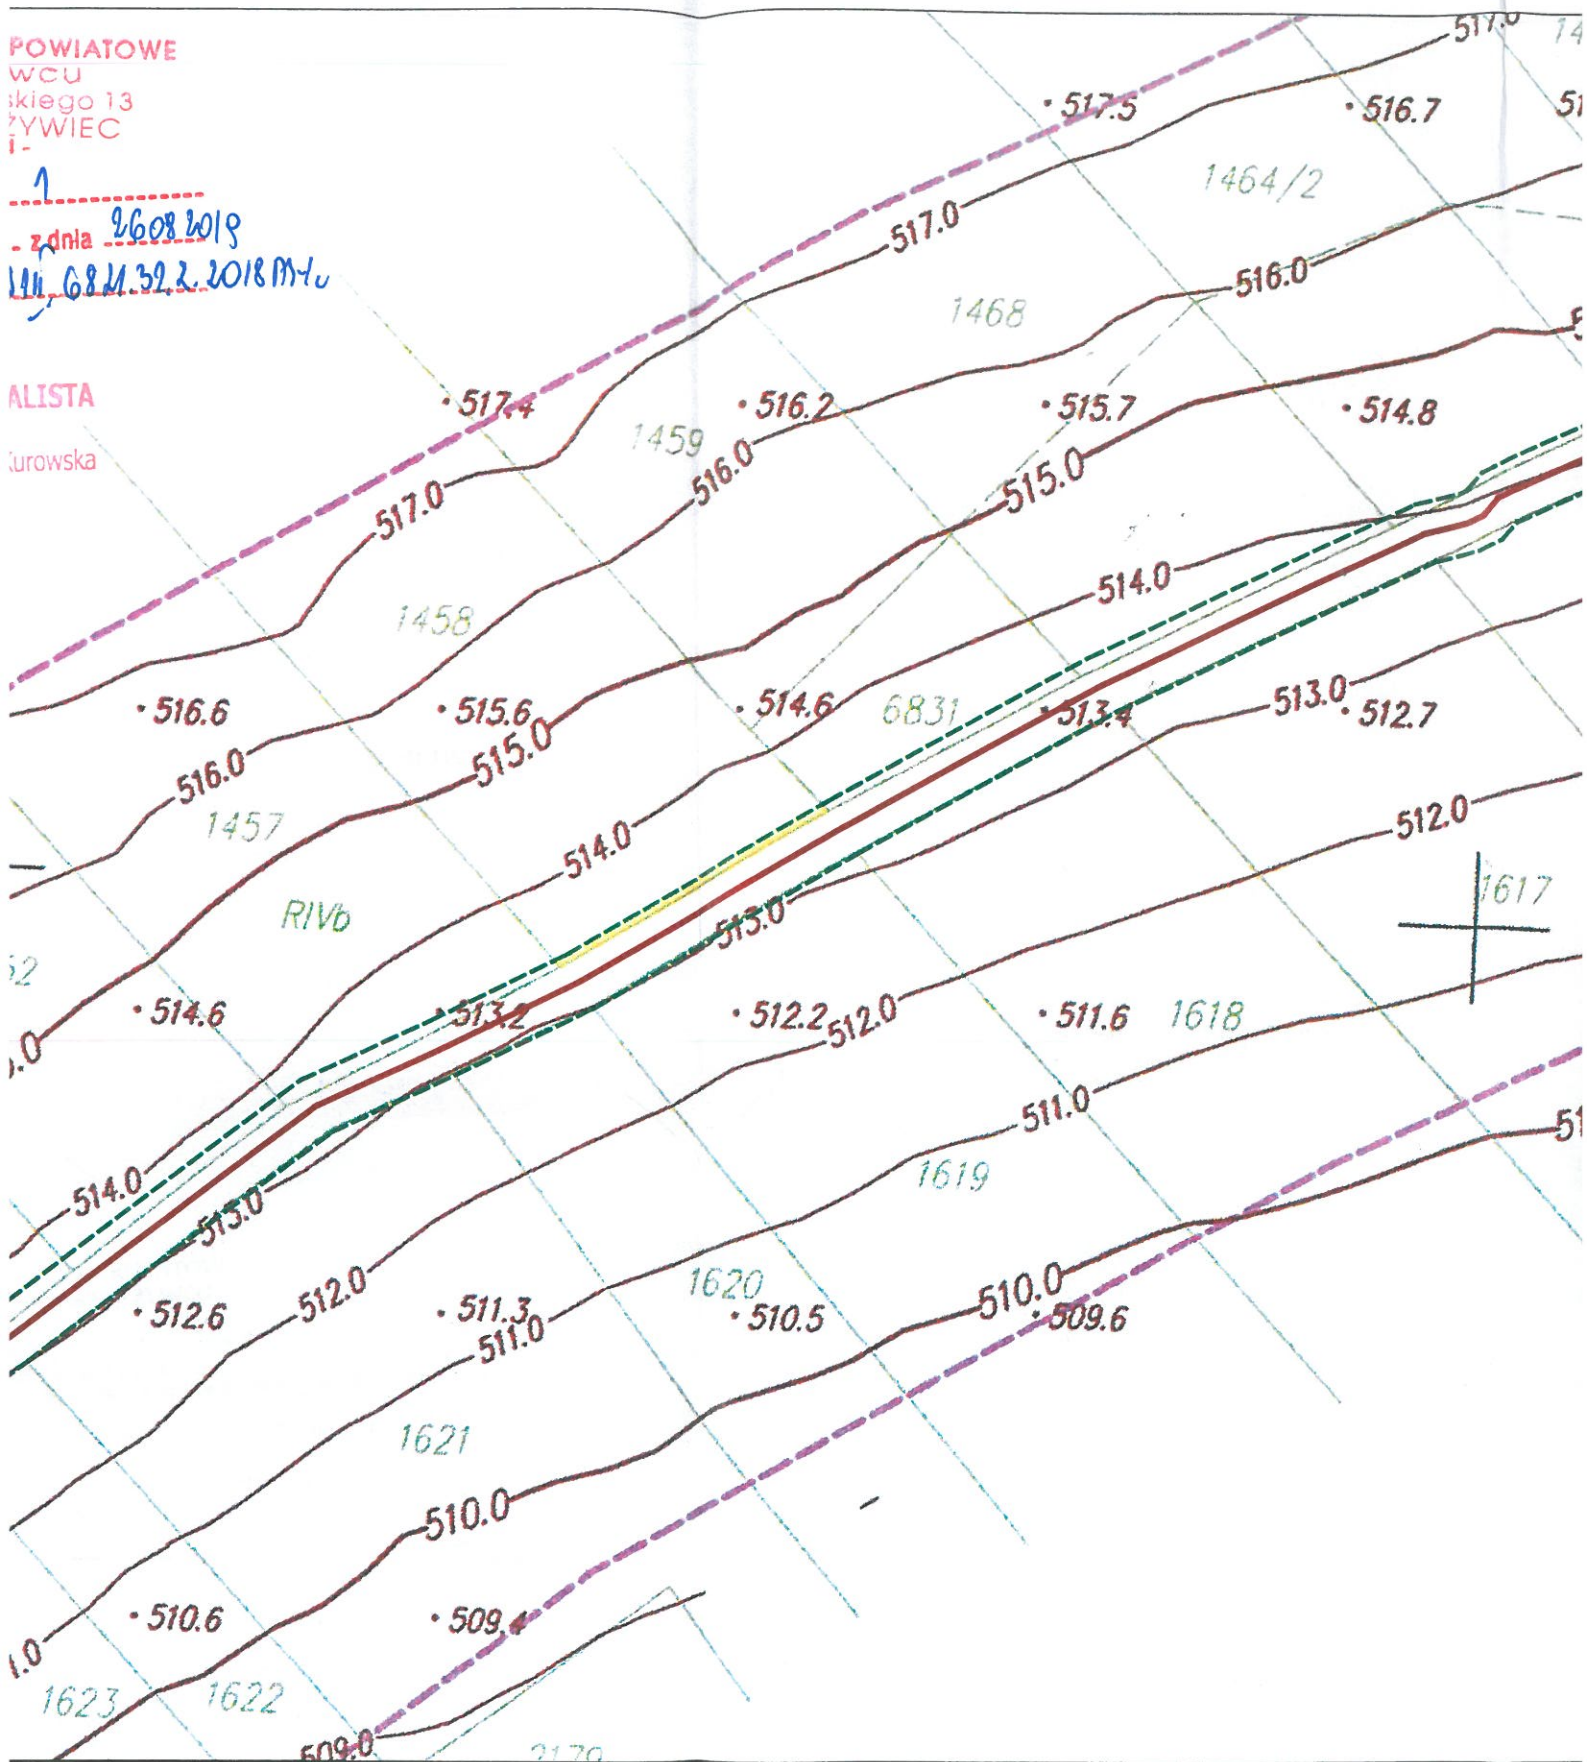 POWIATOWE
WCU
skiego 13
ŻYWIEC
1
- z dnia 26 08 2019
6821.32.2.2018
ALISTA
Kurowska
517.0
14
517.5
516.7
51
1464/2
517.0
516.0
1468
5
517.4
516.2
515.7
514.8
1459
516.0
515.0
517.0
514.0
1458
516.6
515.6
514.6
6831
513.4
513.0
512.7
515.0
516.0
1457
514.0
512.0
1617
RIVb
513.0
52
514.6
513.2
512.2
512.0
511.6
1618
.0
511.0
51
514.0
1619
513.0
512.0
1620
510.0
512.6
511.3
510.5
509.6
511.0
1621
510.0
510.6
509.4
1.0
1623
1622
509.0
2179